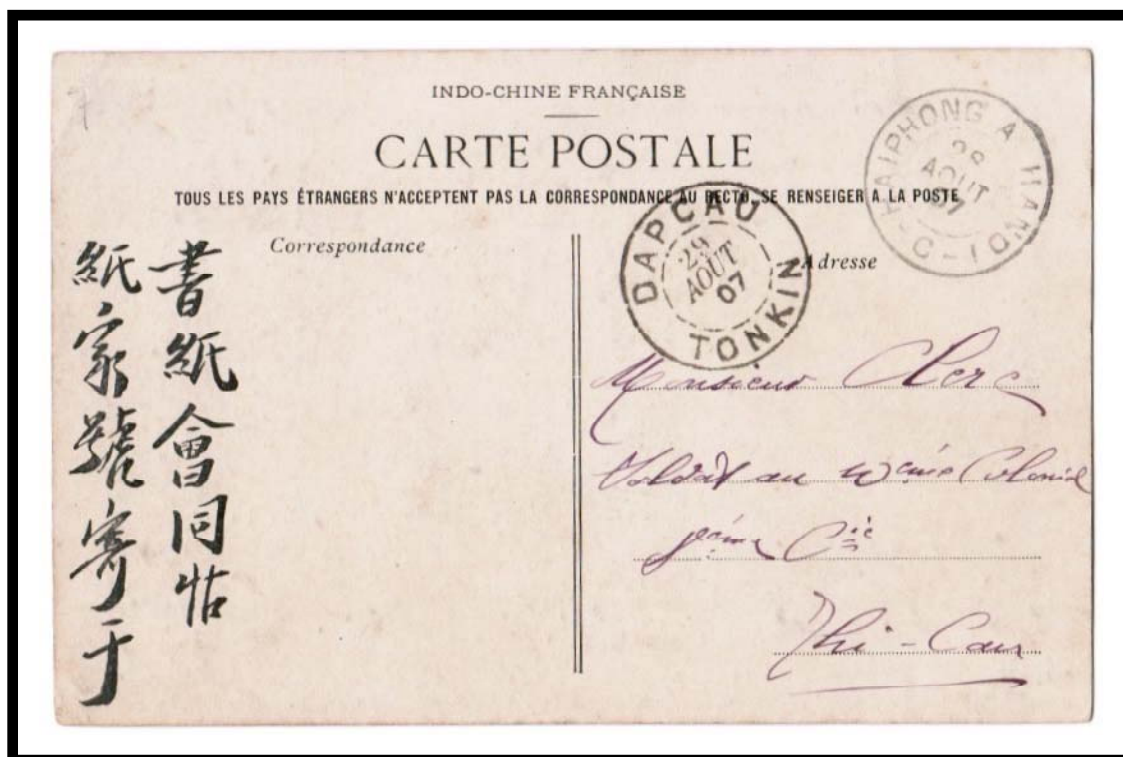 INDO-CHINE FRANÇAISE
CARTE POSTALE
TOUS LES PAYS ÉTRANGERS N'ACCEPTENT PAS LA CORRESPONDANCE AU RECTO, SE RENSEIGER A LA POSTE
HAIPHONG A HANOI
AOUT
07
DAPCAU
29
AOUT
07
TONKIN
Correspondance
書紙會同帖
紙家號寄于
Adresse
Monsieur Clerc
Soldat au Colonial
Cie
Thi-Cau